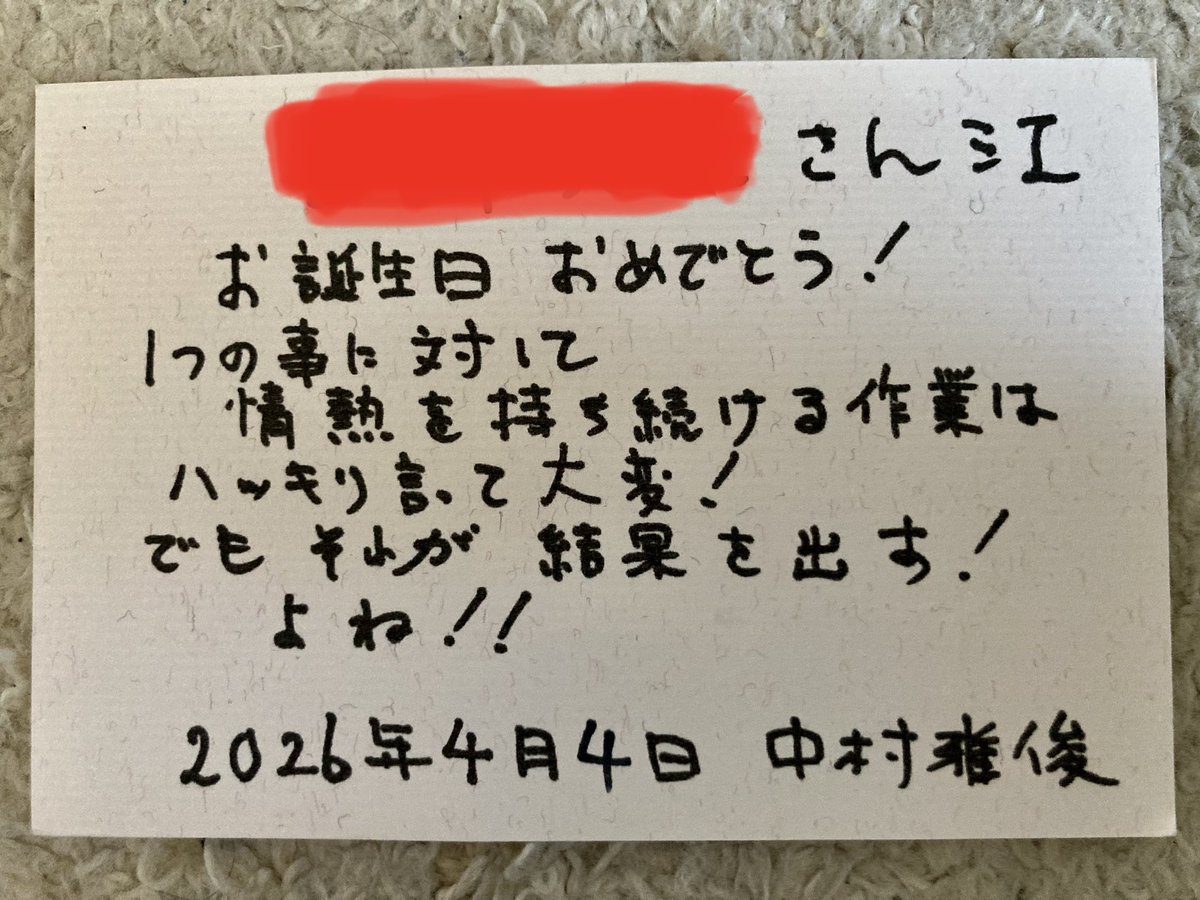 さん江
お誕生日 おめでとう!
1つの事に対して
情熱を持ち続ける作業は
ハッキリ言って大変!
でもそれが結果を出す!
よね!!
2026年4月4日 中村雅俊